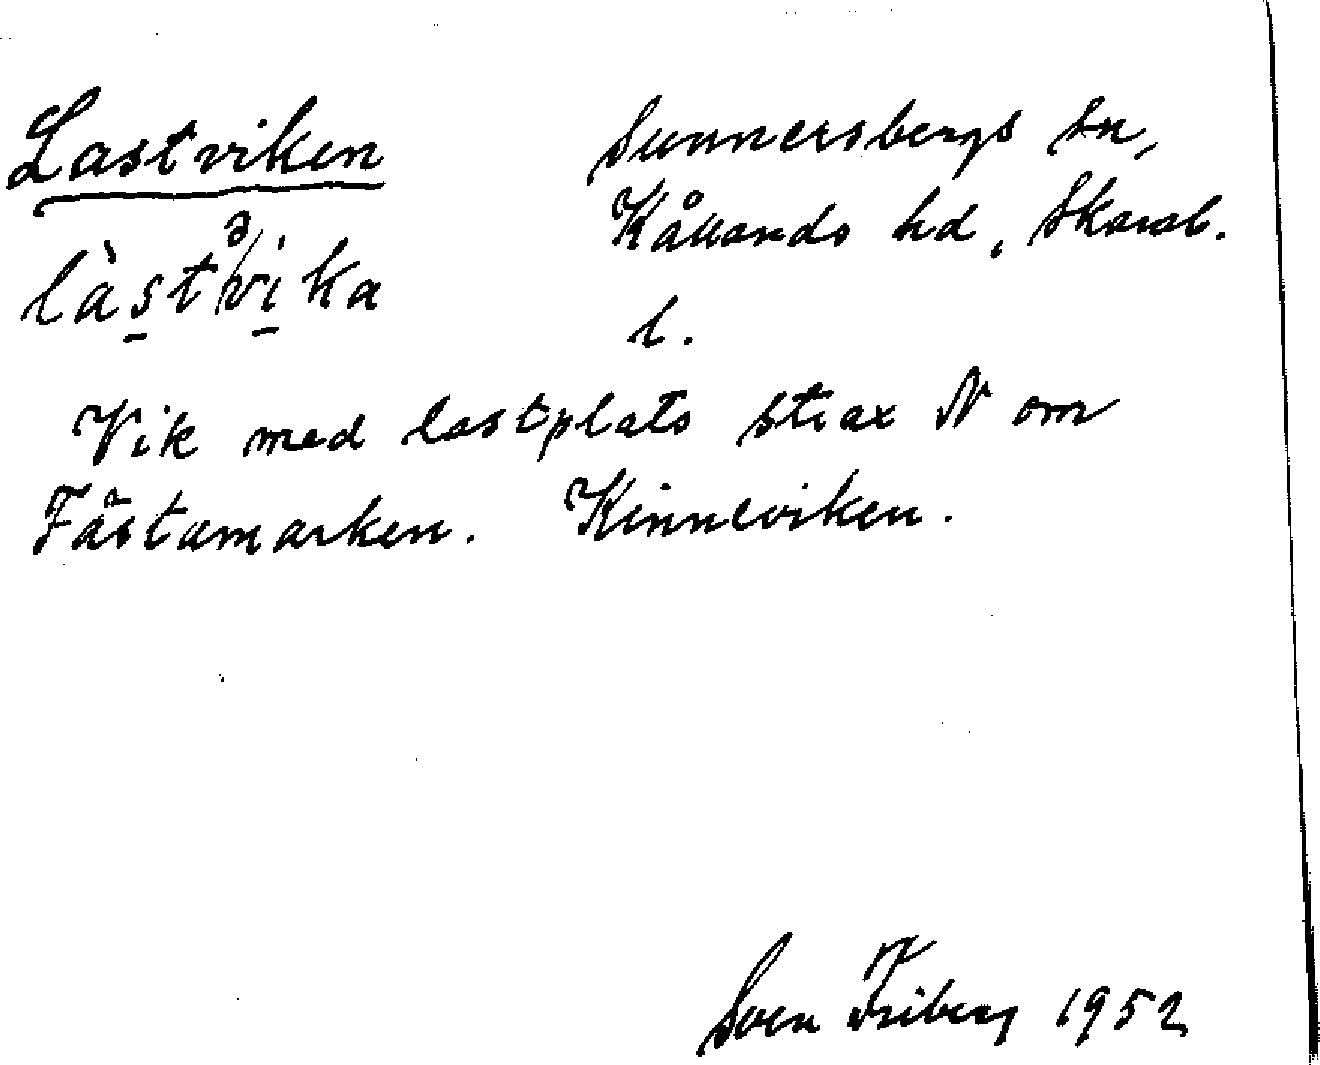 Lastviken
Sunnersbergs sn,
Kållands hd, Skarab.
l.
làstvika
Vik med lastplats strax N om
Fästamarken. Kinneviken.
Sven Friberg 1952